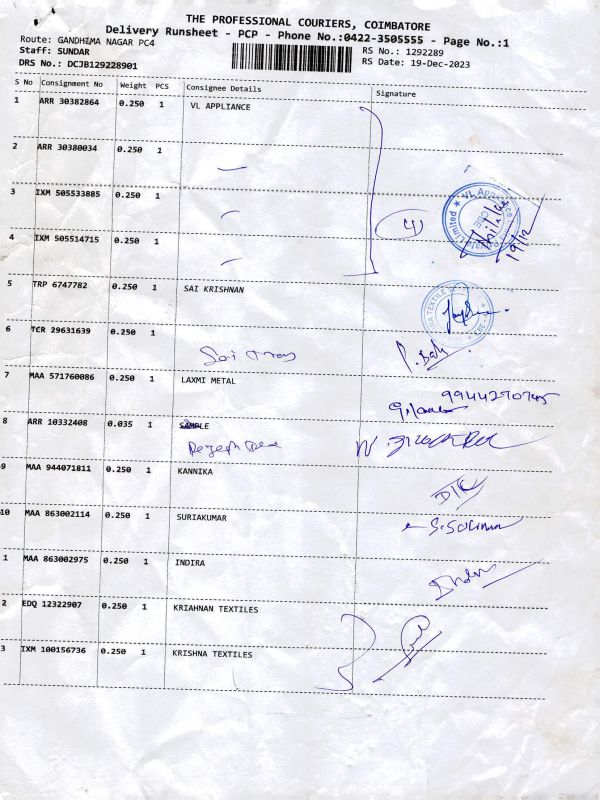 THE PROFESSIONAL COURIERS, COIMBATORE
Delivery Runsheet - PCP - Phone No.:0422-3505555 - Page No.:1
Route: GANDHIMA NAGAR PC4
RS No.: 1292289
Staff: SUNDAR
RS Date: 19-Dec-2023
DRS No.: DCJB129228901
S No Consignment No Weight PCS Consignee Details Signature
1 ARR 30382864 0.250 1 VL APPLIANCE
2 ARR 30380034 0.250 1
3 IXM 505533885 0.250 1
4 IXM 505514715 0.250 1
4
VL Appliance Private Limited
CBE
19/12
5 TRP 6747782 0.250 1 SAI KRISHNAN
6 TCR 29631639 0.250 1
7 MAA 571760086 0.250 1 LAXMI METAL
9944270745
8 ARR 10332408 0.035 1 SAMPLE
9 MAA 944071811 0.250 1 KANNIKA
10 MAA 863002114 0.250 1 SURIAKUMAR
1 MAA 863002975 0.250 1 INDIRA
2 EDQ 12322907 0.250 1 KRIAHNAN TEXTILES
3 IXM 100156736 0.250 1 KRISHNA TEXTILES